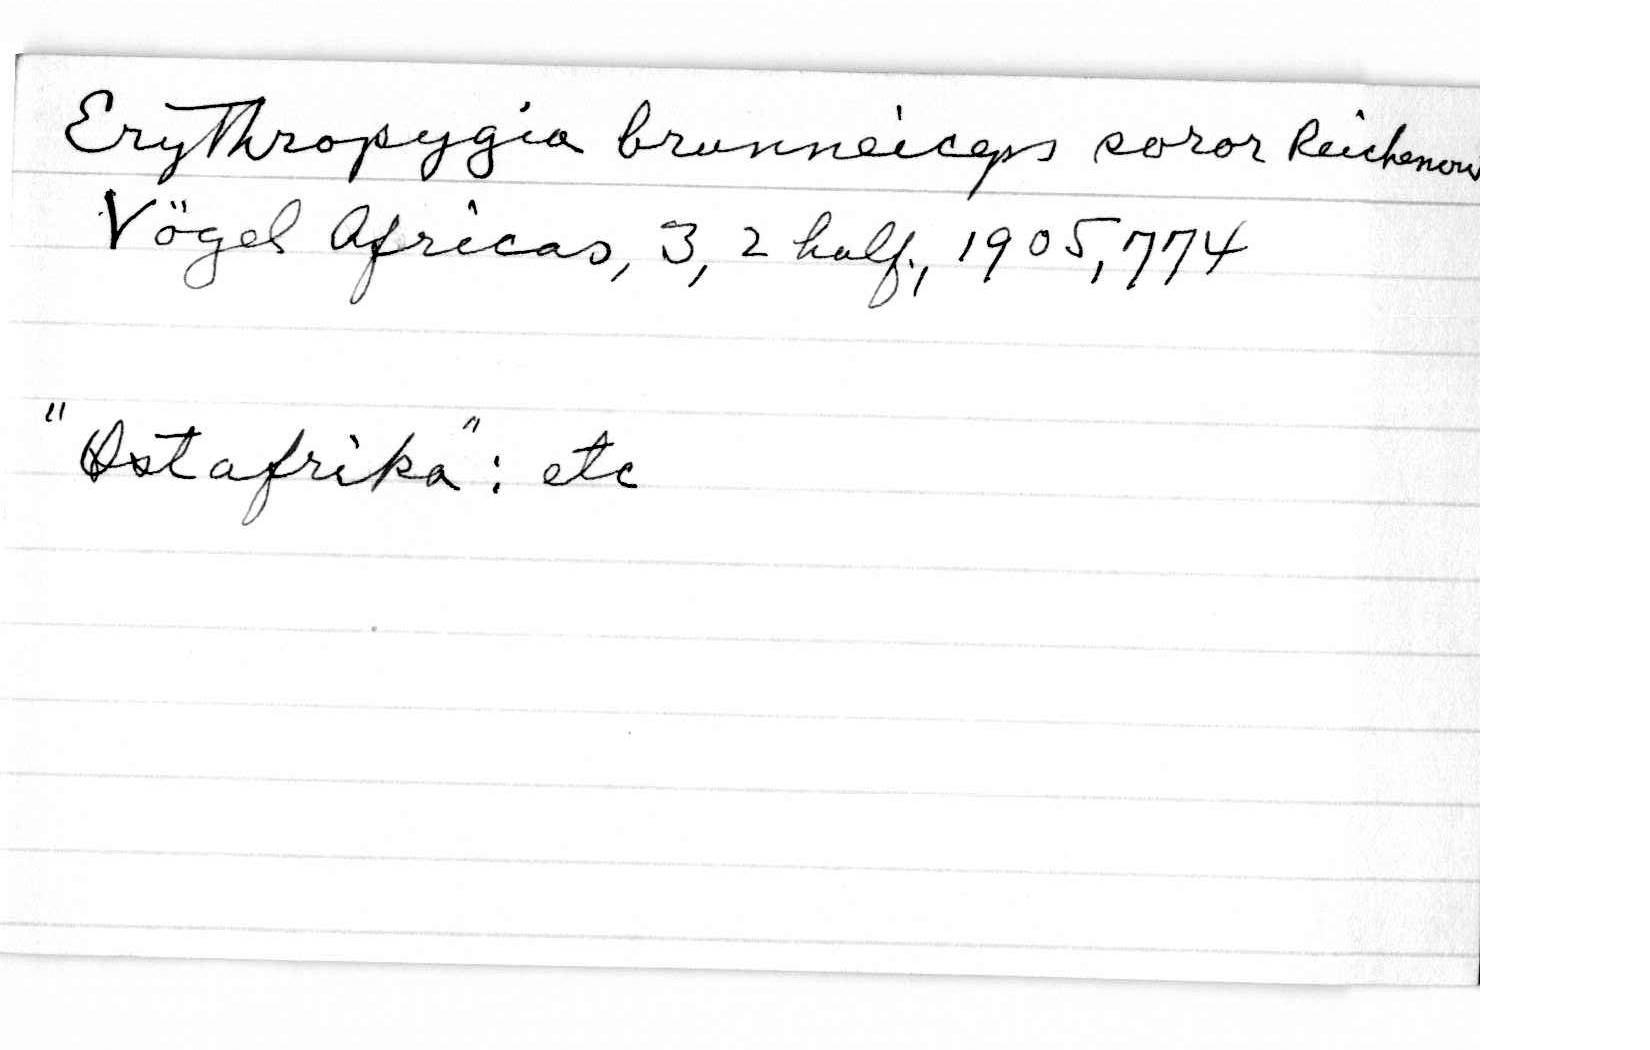 Erythropygia brunneiceps soror Reichenow
Vögel Africas, 3, 2 half., 1905, 774
"Ostafrika": etc